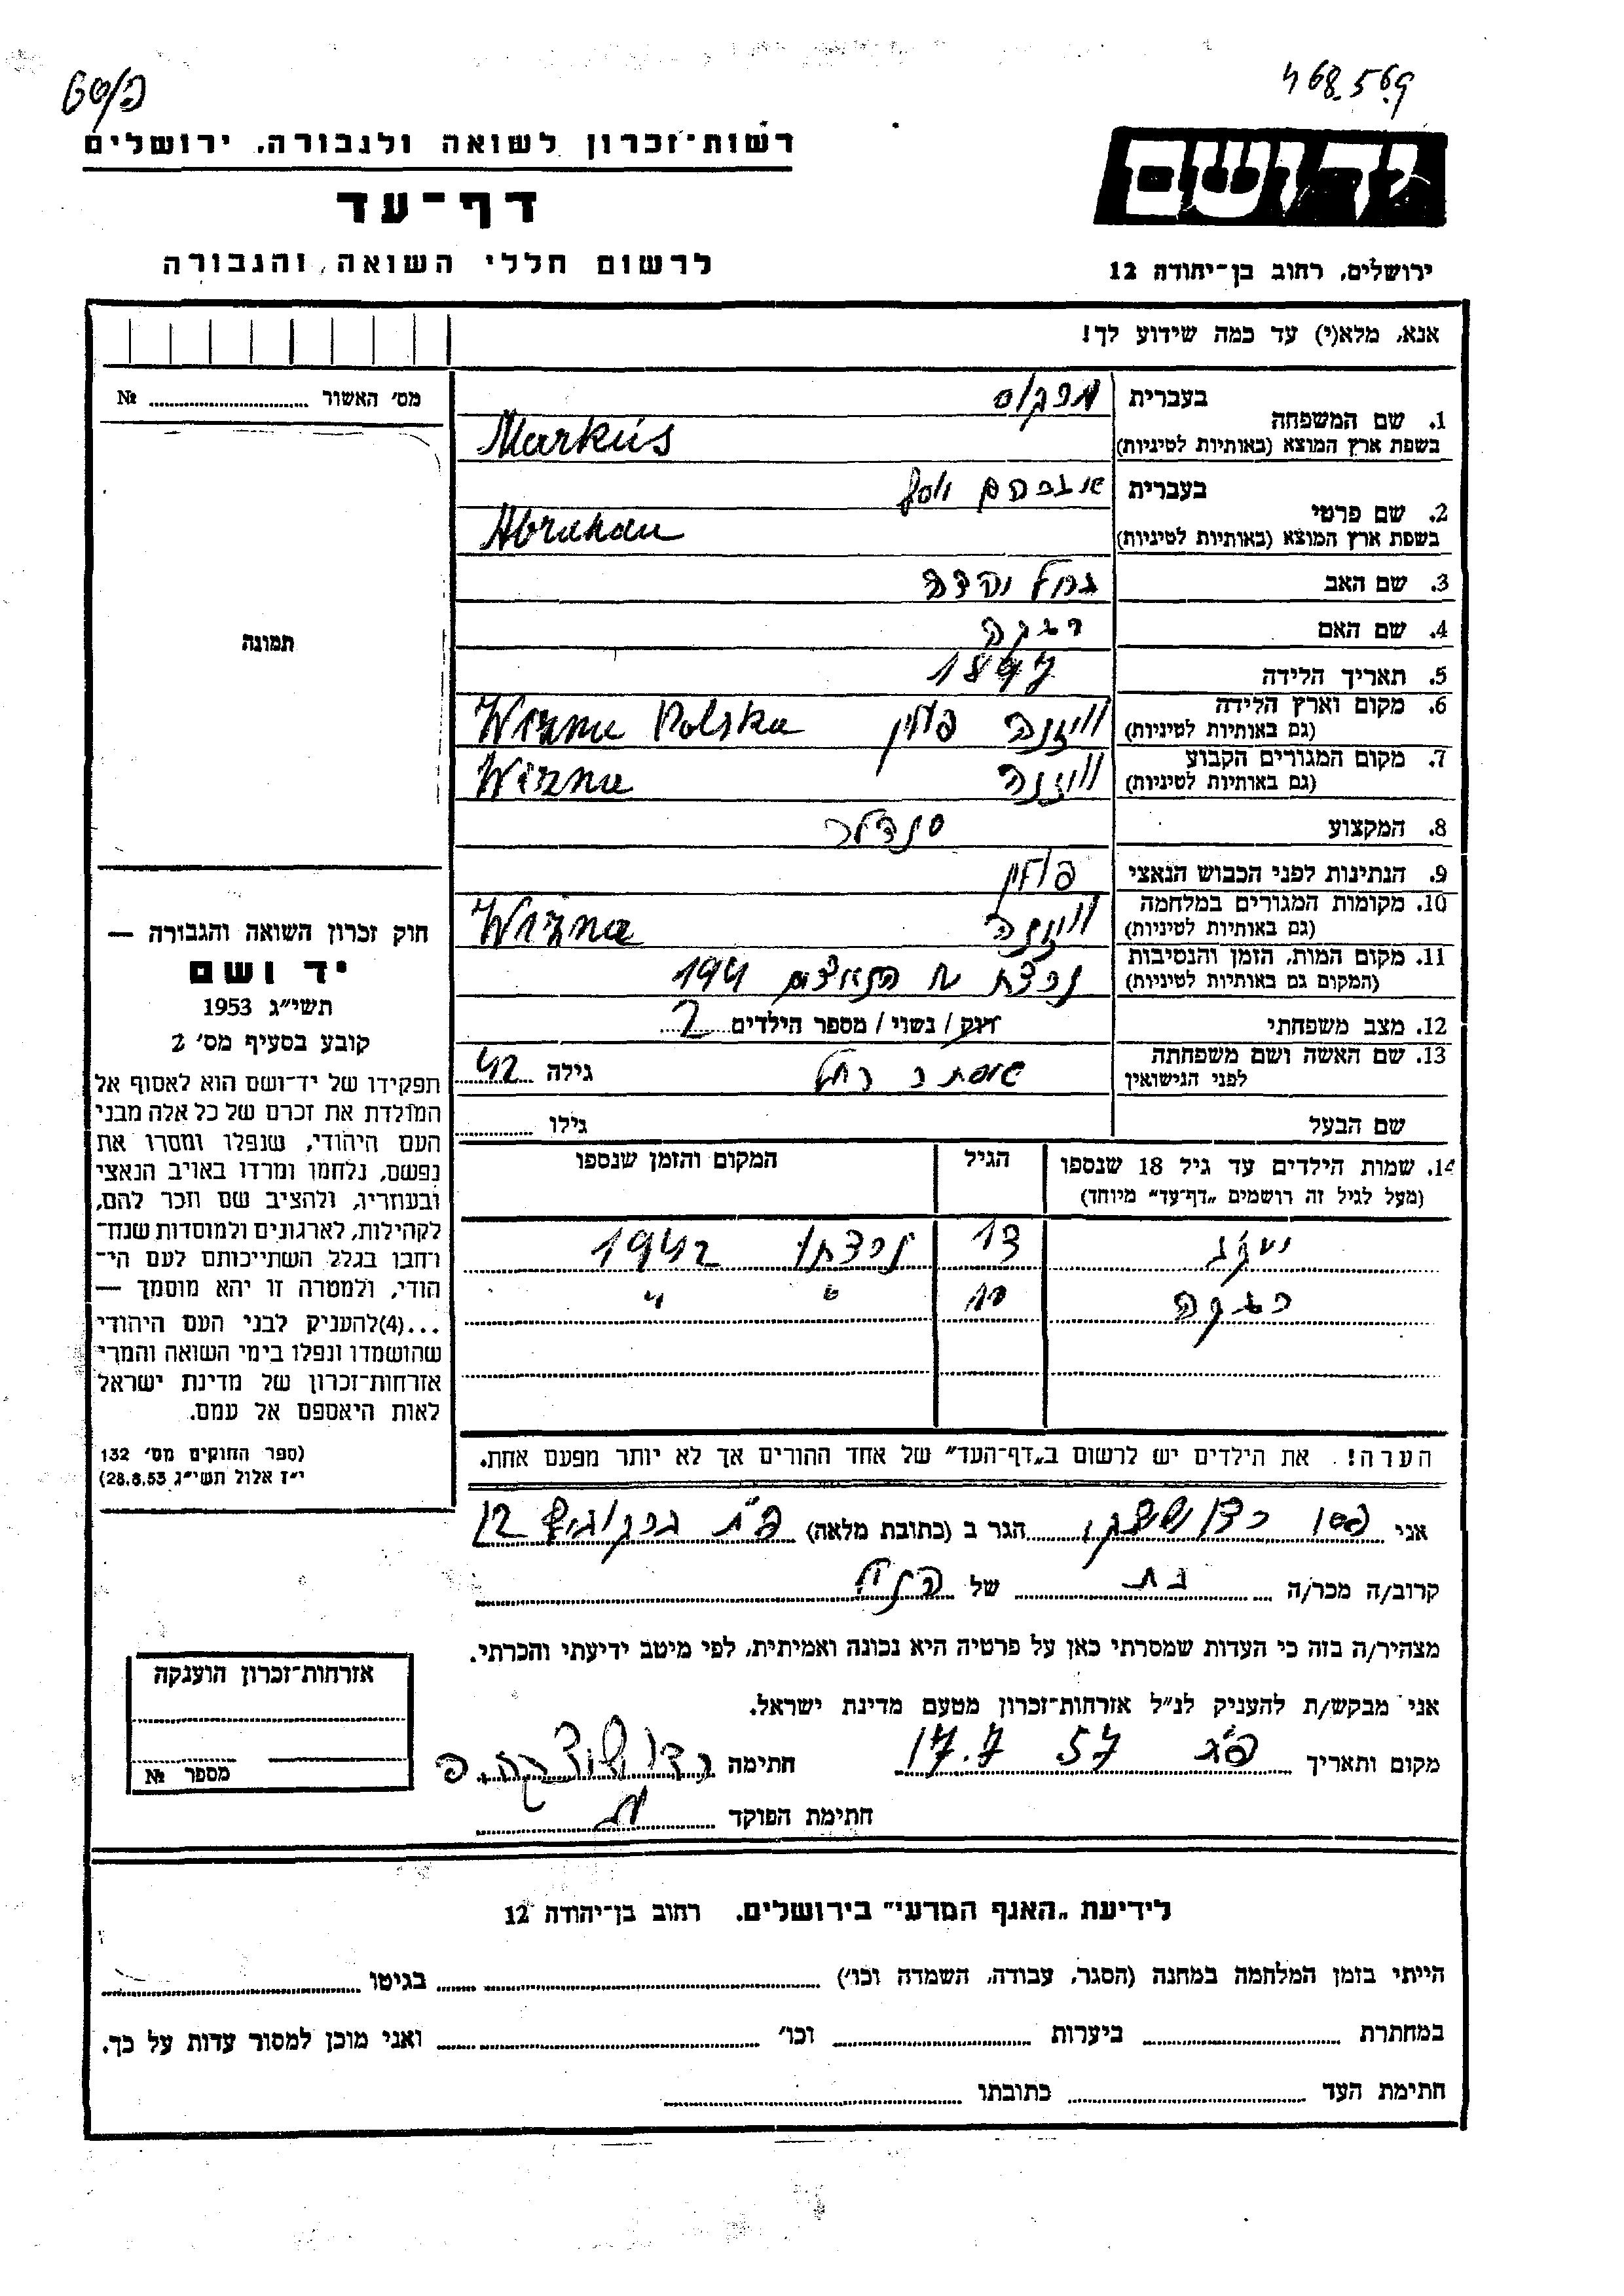 468.569
רשות־זכרון לשואה ולגבורה, ירושלים
יד ושם
דף־עד
לרשום חללי השואה והגבורה
ירושלים, רחוב בן־יהודה 12
אנא, מלא(י) עד כמה שידוע לך!
מס׳ האשור № 
1. שם המשפחה
בעברית מרקוס
בשפת ארץ המוצא (באותיות לטיניות) Markus
2. שם פרטי
בעברית אברהם יוסף
בשפת ארץ המוצא (באותיות לטיניות) Abraham
3. שם האב יהודה
4. שם האם רבקה
5. תאריך הלידה 1897
6. מקום וארץ הלידה
(גם באותיות לטיניות) וויזנה פולין Wizna Polska
7. מקום המגורים הקבוע
(גם באותיות לטיניות) וויזנה Wizna
8. המקצוע סנדלר
9. הנתינות לפני הכבוש הנאצי פולין
10. מקומות המגורים במלחמה
(גם באותיות לטיניות) וויזנה Wizna
11. מקום המות, הזמן והנסיבות
(המקום גם באותיות לטיניות) הנאצים 1941
12. מצב משפחתי רווק / נשוי / מספר הילדים 2
13. שם האשה ושם משפחתה
לפני הנישואין רחל גילה 42
שם הבעל גילו
14. שמות הילדים עד גיל 18 שנספו
(מעל לגיל זה רושמים „דף־עד״ מיוחד)
הגיל
המקום והזמן שנספו
יעקב 13 נרצחו 1942
רבקה 10 " "
הערה! את הילדים יש לרשום ב„דף־העד״ של אחד ההורים אך לא יותר מפעם אחת.
תמונה
חוק זכרון השואה והגבורה —
יד ושם
תשי״ג 1953
קובע בסעיף מס׳ 2
תפקידו של יד־ושם הוא לאסוף אל
המולדת את זכרם של כל אלה מבני
העם היהודי, שנפלו ומסרו את
נפשם, נלחמו ומרדו באויב הנאצי
ובעוזריו, ולהציב שם וזכר להם,
לקהילות, לארגונים ולמוסדות שנח־
רחבו בגלל השתייכותם לעם הי־
הודי, ולמטרה זו יהא מוסמך —
...(4)להעניק לבני העם היהודי
שהושמדו ונפלו בימי השואה והמרי
אזרחות־זכרון של מדינת ישראל
לאות היאספם אל עמם.
(ספר החוקים מס׳ 132
י״ז אלול תשי״ג 28.8.53)
אני הגר ב (כתובת מלאה) פ״ת 12
קרוב/ה מכר/ה בת של הנ״ל
מצהיר/ה בזה כי העדות שמסרתי כאן על פרטיה היא נכונה ואמיתית, לפי מיטב ידיעתי והכרתי.
אני מבקש/ת להעניק לנ״ל אזרחות־זכרון מטעם מדינת ישראל.
מקום ותאריך 17.7 57 חתימה
חתימת הפוקד
אזרחות־זכרון הוענקה
מספר №
לידיעת „האגף המדעי״ בירושלים. רחוב בן־יהודה 12
הייתי בזמן המלחמה במחנה (הסגר, עבודה, השמדה וכו׳) בגיטו
במחתרת ביערות וכו׳ ואני מוכן למסור עדות על כך.
חתימת העד כתובתו